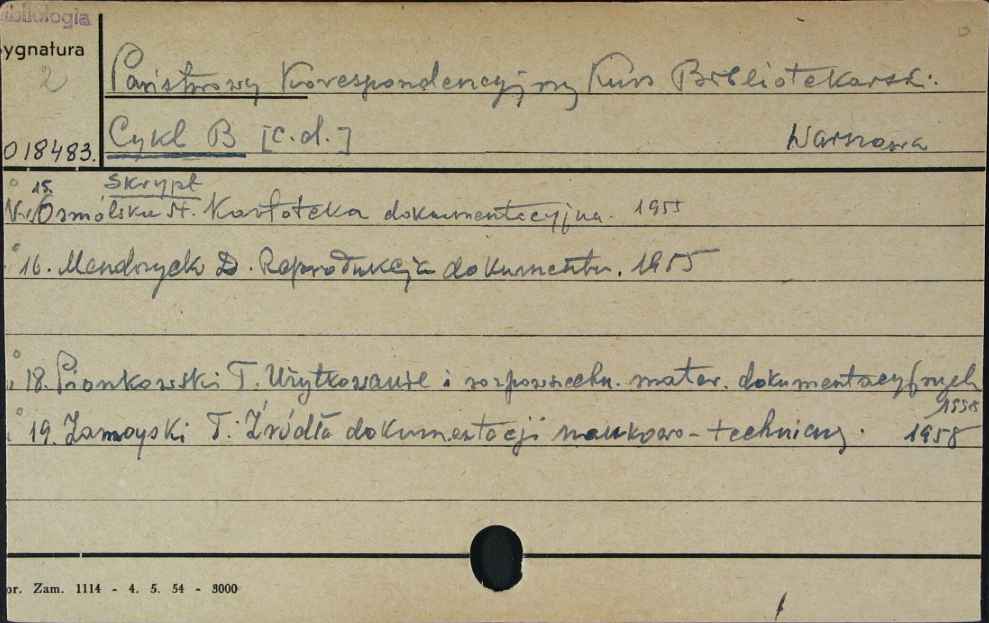 bibliologia
ygnatura
2
Państwowy Korespondencyjny Kurs Bibliotekarski.
018483. Cykl B [c.d.] Warszawa
Skrypt
15. Osmólska St. Kartoteka dokumentacyjna. 1955
16. Mendzyck D. Reprodukcja dokumentu. 1955
18. Pionkowski T. Użytkowanie i rozpowszechn. mater. dokumentacyjnych
1958
19. Zamoyski T. Źródła dokumentacji naukowo-techniczny. 1958
or. Zam. 1114 - 4. 5. 54 - 3000